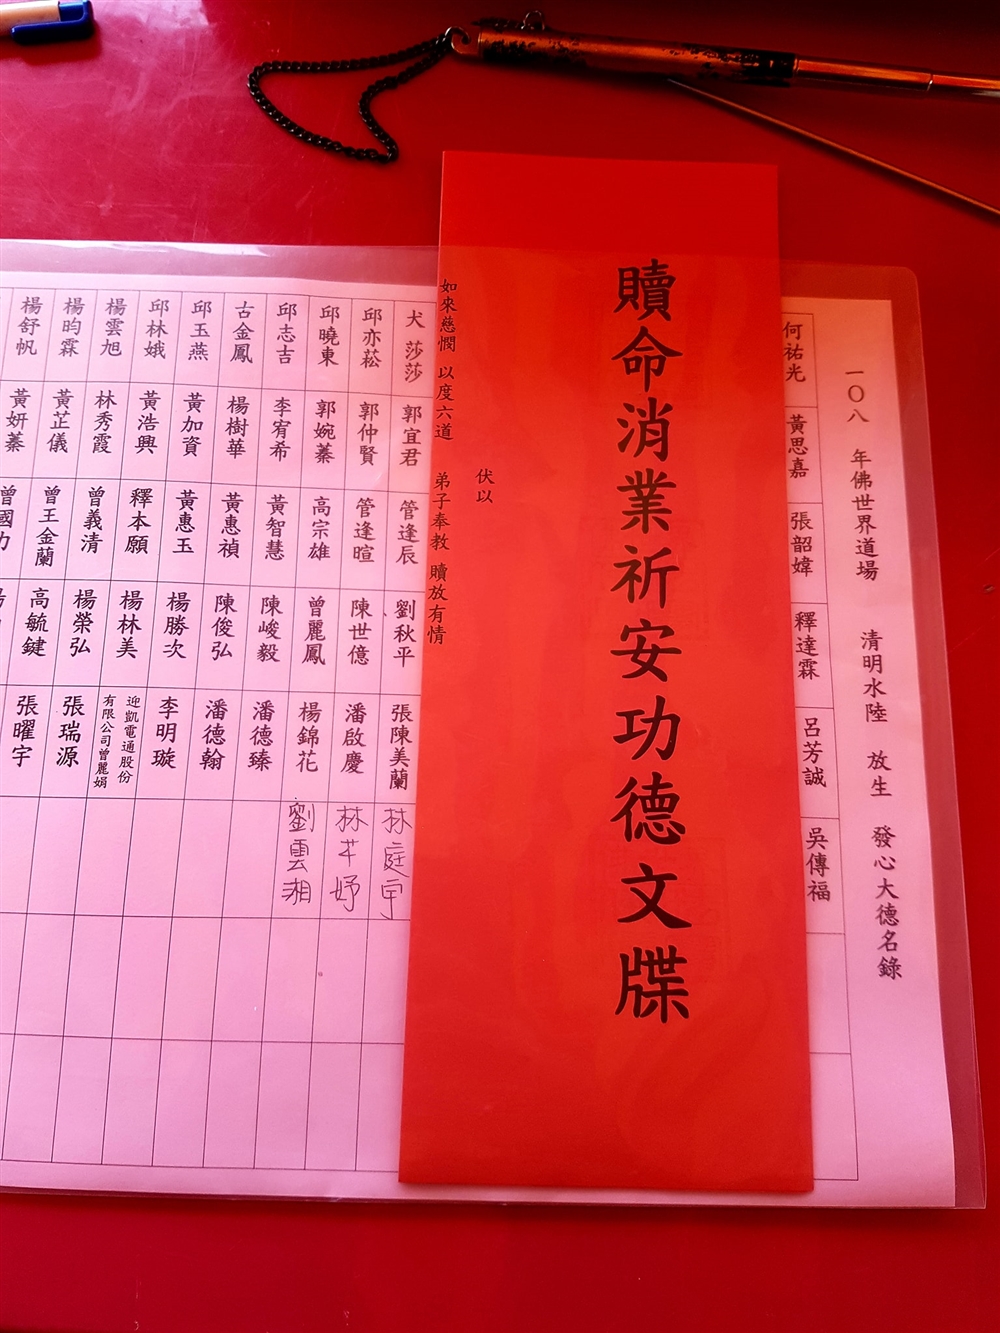 一〇八 年佛世界道場 清明水陸 放生 發心大德名錄
何祐光 黃思嘉 張韶媁 釋達霖 呂芳誠 吳傳福
贖命消業祈安功德文牒
伏以
如來慈憫 以度六道 弟子奉教 贖放有情
犬 莎莎 郭宜君 管逢辰 劉秋平 張陳美蘭 林庭宇
邱亦菘 郭仲賢 管逢暄 陳世億 潘啟慶 林芊妤
邱曉東 郭婉蓁 高宗雄 曾麗鳳 楊錦花 劉雲湘
邱志吉 李宥希 黃智慧 陳峻毅 潘德臻
古金鳳 楊樹華 黃惠禎 陳俊弘 潘德翰
邱玉燕 黃加資 黃惠玉 楊勝次 李明璇
邱林娥 黃浩興 釋本願 楊林美 迎凱電通股份
有限公司曾麗娟
楊雲旭 林秀霞 曾義清 楊榮弘 張瑞源
楊昀霖 黃芷儀 曾王金蘭 高毓鍵 張曜宇
楊舒帆 黃妍蓁